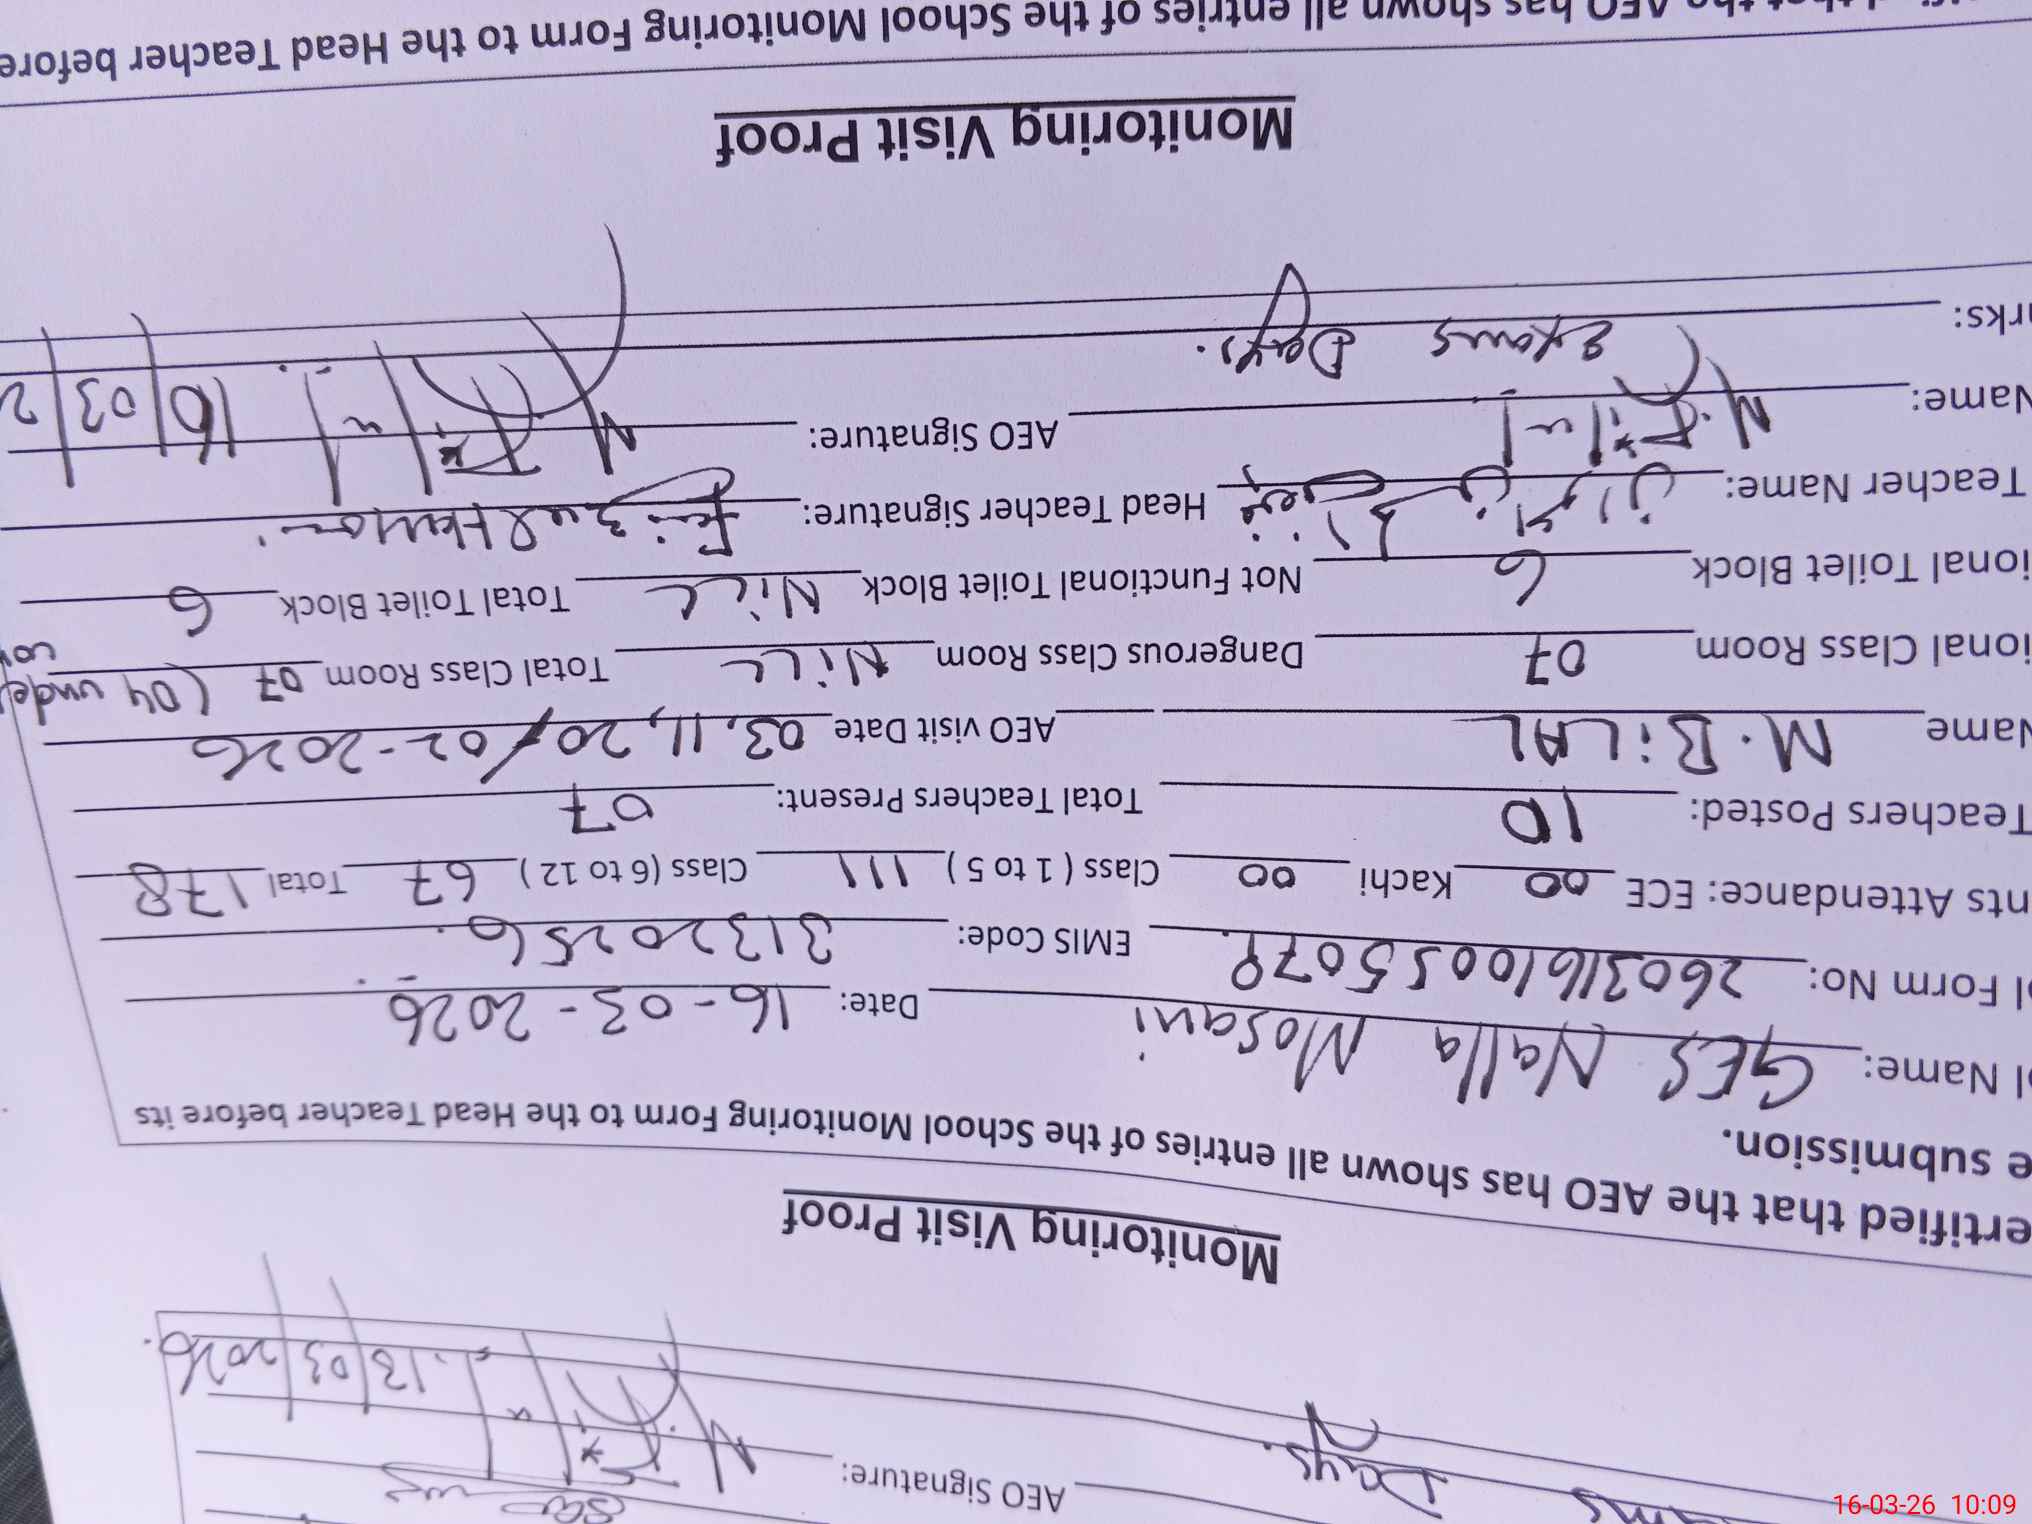 AEO Signature:
Days.
13/03/2026.
Monitoring Visit Proof
ertified that the AEO has shown all entries of the School Monitoring Form to the Head Teacher before its
e submission.
ol Name: GES Nalla Mosani Date: 16-03-2026
ol Form No: EMIS Code: 31320256
nts Attendance: ECE 00 Kachi 00 Class ( 1 to 5 ) 111 Class (6 to 12 ) 67 Total 178
Teachers Posted: 10 Total Teachers Present: 07
Name M. BiLAL AEO visit Date 03, 11, 20/02-2026
ional Class Room 07 Dangerous Class Room NiLL Total Class Room 07 (04 unde
ional Toilet Block 6 Not Functional Toilet Block NiLL Total Toilet Block 6
Teacher Name: Head Teacher Signature:
Name: AEO Signature: 16/03/2
rks: Exams Days.
Monitoring Visit Proof
that the AEO has shown all entries of the School Monitoring Form to the Head Teacher before
16-03-26 10:09